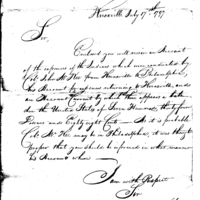 Knoxville July 17th 1797
Sir,
Enclosed you will receive an Account
of the expences of the Indians which were conducted by
Col. John McKee from Knoxville to Philadelphia,
his Account of expences returning to Knoxville, and
an Account Current by which there appears a balance
due the United States of Seven Hundred, thirty four
Dollars and Eighty eight Cents — As it is probable
Col. McKee may be in Philadelphia, it was thought
proper that you should be informed in what manner
his Account where
I am with Respect
Sir